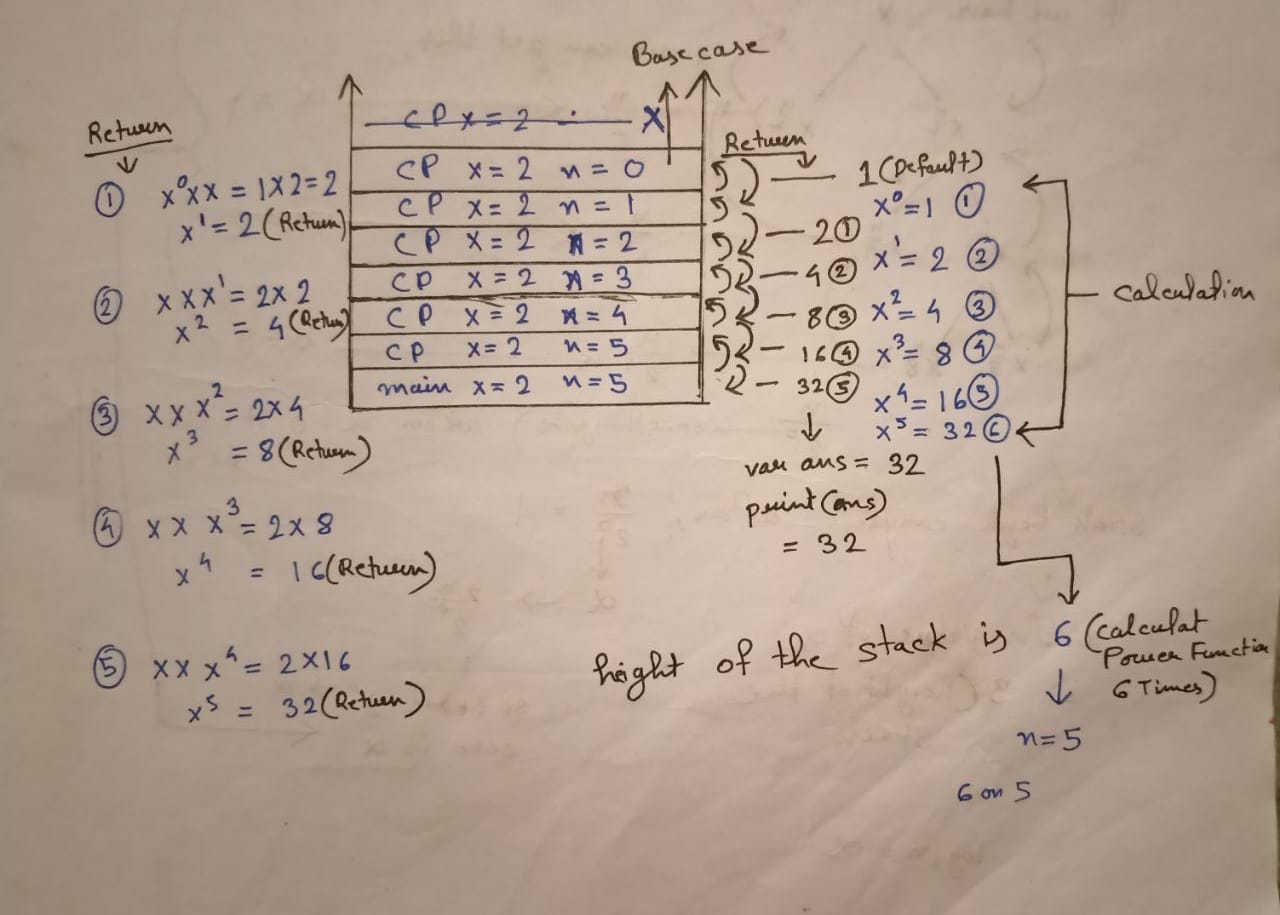 Base case
Return
① x⁰ x x = 1 x 2 = 2
x¹ = 2 (Return)
② x x x¹ = 2 x 2
x² = 4 (Return)
③ x x x² = 2 x 4
x³ = 8 (Return)
④ x x x³ = 2 x 8
x⁴ = 16 (Return)
⑤ x x x⁴ = 2 x 16
x⁵ = 32 (Return)
CP x = 2 x
CP x = 2 n = 0
CP x = 2 n = 1
CP x = 2 n = 2
CP x = 2 n = 3
CP x = 2 n = 4
CP x = 2 n = 5
main x = 2 n = 5
Return
1 (Default)
2 ①
4 ②
8 ③
16 ④
32 ⑤
var ans = 32
print (ans)
= 32
x⁰ = 1 ①
x¹ = 2 ②
x² = 4 ③
x³ = 8 ④
x⁴ = 16 ⑤
x⁵ = 32 ⑥
Calculation
height of the stack is 6 (Calculat
Power Function
6 Times)
n = 5
6 on 5